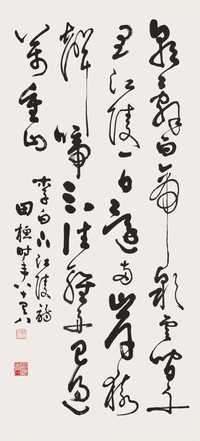 朝辭白帝彩雲間千
里江陵一日還兩岸猿
聲啼不住輕舟已過
萬重山
李白下江陵詩
田桓时年八十又八